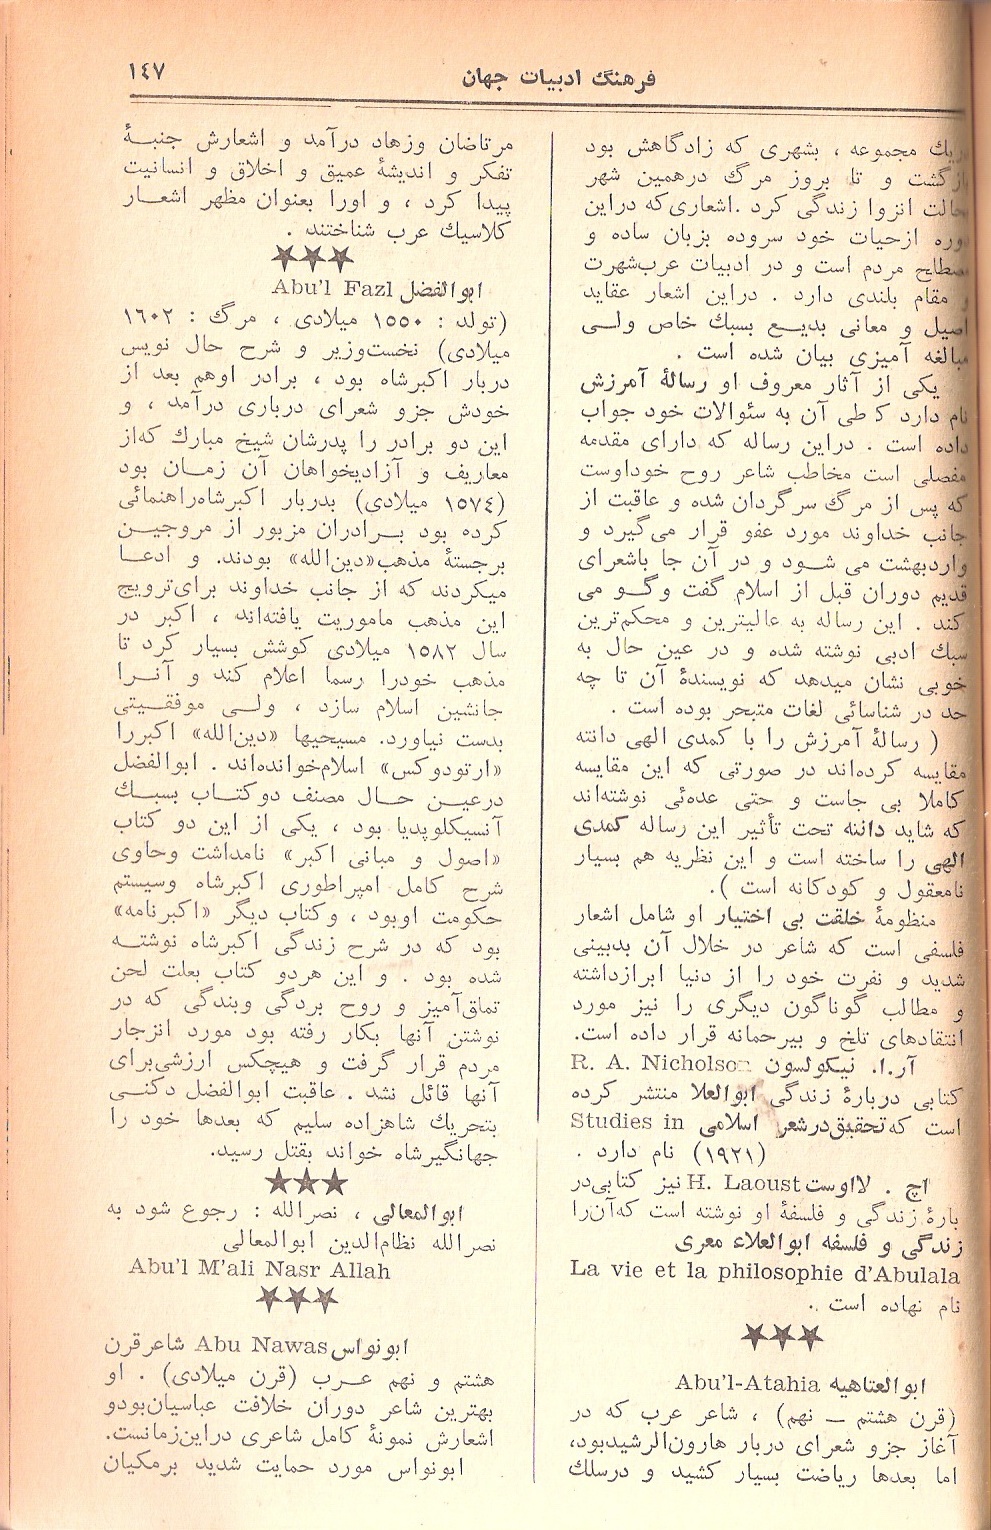 فرهنگ ادبیات جهان
۱٤٧
دریك مجموعه ، بشهری که زادگاهش بود
بازگشت و تا بروز مرگ درهمین شهر
بحالت انزوا زندگی کرد .اشعاری‌که دراین
دوره ازحیات خود سروده بزبان ساده و
مصطلح مردم است و در ادبیات عرب‌شهرت
و مقام بلندی دارد . دراین اشعار عقاید
اصیل و معانی بدیـع بسبك خاص ولـی
مبالغه آمیزی بیان شده است .
یکی از آثار معروف او رسالهٔ آمرزش
نام دارد که طی آن به سئوالات خود جواب
داده است . دراین رساله که دارای مقدمه
مفصلی است مخاطب شاعر روح خوداوست
که پس از مرگ سرگردان شده و عاقبت از
جانب خداوند مورد عفو قرار می‌گیرد و
واردبهشت می شـود و در آن جا باشعرای
قدیم دوران قبل از اسلام گفت وگـو می
کند . این رساله به عالیترین و محکم‌ترین
سبك ادبی نوشته شده و در عین حال به
خوبی نشان میدهد که نویسندهٔ آن تا چه
حد در شناسائی لغات متبحر بوده است .
( رسالهٔ آمرزش را با کمدی الهی دانته
مقایسه کرده‌اند در صورتی که این مقایسه
کاملا بی جاست و حتی عده‌ئی نوشته‌اند
که شاید دانته تحت تأثیر این رساله کمدی
الهی را ساخته است و این نظریه هم بسیار
نامعقول و کودکانه است ).
منظومهٔ خلقت بی اختیار او شامل اشعار
فلسفی است که شاعر در خلال آن بدبینی
شدید و نفرت خود را از دنیا ابرازداشته
و مطالب گوناگون دیگری را نیز مورد
انتقادهای تلخ و بیرحمانه قرار داده است.
آر.ا. نیکولسون R. A. Nicholson
کتابی دربارهٔ زندگی ابوالعلا منتشر کرده
است که تحقیق‌درشعر اسلامی Studies in
(۱۹۲۱) نام دارد .
اچ . لااوست H. Laoust نیز کتابی‌در
بارهٔ زندگی و فلسفهٔ او نوشته است که‌آن‌را
زندگی و فلسفه ابوالعلاء معری
La vie et la philosophie d'Abulala
نام نهاده است .
★★★
ابوالعتاهیه Abu'l-Atahia
(قرن هشتم ــ نهم) ، شاعر عرب که در
آغاز جزو شعرای دربار هارون‌الرشیدبود،
اما بعدها ریاضت بسیار کشید و درسلك
مرتاضان وزهاد درآمد و اشعارش جنبـهٔ
تفکر و اندیشهٔ عمیق و اخلاق و انسانیت
پیدا کرد ، و اورا بعنوان مظهر اشعـار
کلاسیك عرب شناختند .
★★★
ابوالفضل Abu'l Fazl
(تولد : ۱۵۵۰ میلادی ، مرگ : ۱٦۰۲
میلادی) نخست‌وزیر و شرح حال نویس
دربار اکبرشاه بود ، برادر اوهم بعد از
خودش جزو شعرای درباری درآمد ، و
این دو برادر را پدرشان شیخ مبارك که‌از
معاریف و آزادیخواهان آن زمـان بود
(۱۵٧٤ میلادی) بدربار اکبرشاه‌راهنمائی
کرده بود بـرادران مزبور از مروجیـن
برجستهٔ مذهب«دین‌الله» بودند. و ادعـا
میکردند که از جانب خداوند برای‌ترویج
این مذهب ماموریت یافته‌اند ، اکبر در
سال ۱۵۸۲ میلادی کوشش بسیار کرد تا
مذهب خودرا رسما اعلام کند و آنـرا
جانشین اسلام سازد ، ولـی موفقـیتی
بدست نیاورد. مسیحیها «دین‌الله» اکبررا
«ارتودوکس» اسلام‌خوانده‌اند . ابوالفضل
درعیـن حـال مصنف دوکتـاب بسبـك
آنسیکلوپدیا بود ، یکی از این دو کتاب
«اصول و مبانی اکبر» نامداشت وحاوی
شرح کامل امپراطوری اکبرشاه وسیستم
حکومت اوبود ، وکتاب دیگر «اکبرنامه»
بود که در شرح زندگی اکبرشاه نوشتـه
شده بود . و این هردو کتاب بعلت لحن
تماق‌آمیز و روح بردگی وبندگی که در
نوشتن آنها بکار رفته بود مورد انزجار
مردم قرار گرفت و هیچکس ارزشی‌برای
آنها قائل نشد . عاقبت ابوالفضل دکنـی
بتحریك شاهزاده سلیم که بعدها خود را
جهانگیرشاه خواند بقتل رسید.
★★★
ابوالمعالی ، نصرالله : رجوع شود به
نصرالله نظام‌الدین ابوالمعالی
Abu'l M'ali Nasr Allah
★★★
ابونواس Abu Nawas شاعرقرن
هشتم و نهم عـرب (قرن میلادی) . او
بهترین شاعر دوران خلافت عباسیان‌بودو
اشعارش نمونهٔ کامل شاعری دراین‌زمانست.
ابونواس مورد حمایت شدید برمکیان